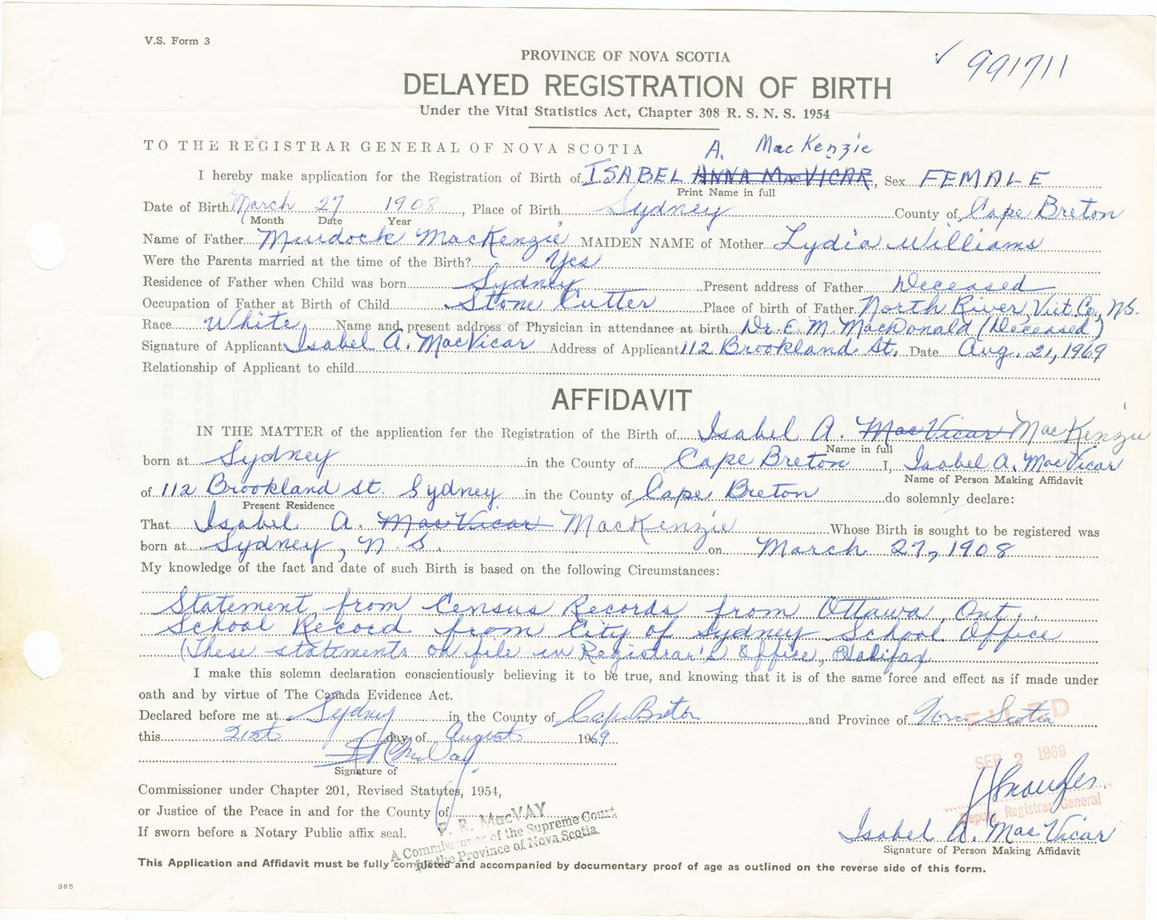 V.S. Form 3
✓ 991711
PROVINCE OF NOVA SCOTIA
DELAYED REGISTRATION OF BIRTH
Under the Vital Statistics Act, Chapter 308 R. S. N. S. 1954
TO THE REGISTRAR GENERAL OF NOVA SCOTIA A. MacKenzie
I hereby make application for the Registration of Birth of ISABEL ANNA MACVICAR, Sex FEMALE
Print Name in full
Date of Birth March 27 1908, Place of Birth Sydney County of Cape Breton
(Month Date Year
Name of Father Murdock MacKenzie MAIDEN NAME of Mother Lydia Williams
Were the Parents married at the time of the Birth? Yes
Residence of Father when Child was born Sydney Present address of Father Deceased
Occupation of Father at Birth of Child Stone Cutter Place of birth of Father North River, Vict. Co., N.S.
Race White Name and present address of Physician in attendance at birth Dr. E. M. MacDonald (Deceased)
Signature of Applicant Isabel A. MacVicar Address of Applicant 112 Brookland St. Date Aug. 21, 1969
Relationship of Applicant to child
AFFIDAVIT
IN THE MATTER of the application for the Registration of the Birth of Isabel A. MacVicar MacKenzie
Name in full
born at Sydney in the County of Cape Breton I, Isabel A. MacVicar
Name of Person Making Affidavit
of 112 Brookland St. Sydney in the County of Cape Breton do solemnly declare:
Present Residence
That Isabel A. MacVicar MacKenzie Whose Birth is sought to be registered was
born at Sydney, N.S. on March 27, 1908
My knowledge of the fact and date of such Birth is based on the following Circumstances:
Statement from Census Records from Ottawa Ont.
School Record from City of Sydney School Office
(These statements on file in Registrar's Office, Halifax)
I make this solemn declaration conscientiously believing it to be true, and knowing that it is of the same force and effect as if made under
oath and by virtue of The Canada Evidence Act.
Declared before me at Sydney in the County of Cape Breton and Province of Nova Scotia
FILED
this 21st day of August 1969
SEP 2 1969
Signature of
Commissioner under Chapter 201, Revised Statutes, 1954,
Deputy Registrar General
or Justice of the Peace in and for the County of
P. R. MacVAY
A Commissioner of the Supreme Court
for the Province of Nova Scotia
If sworn before a Notary Public affix seal.
Isabel A. MacVicar
Signature of Person Making Affidavit
This Application and Affidavit must be fully completed and accompanied by documentary proof of age as outlined on the reverse side of this form.
385